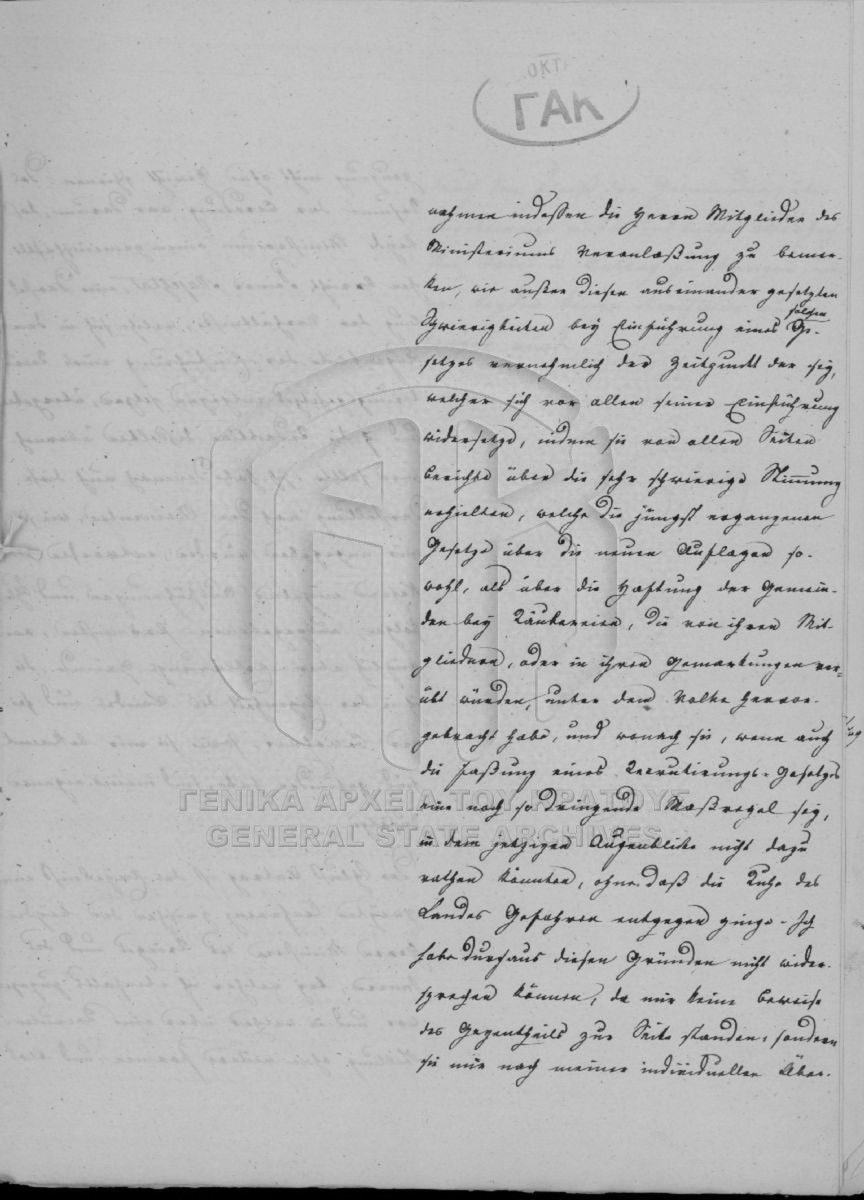 ΓΑΚ
nahmen indessen die Herrn Mitglieder des
Ministeriums Veranlaßung zu bemer-
ken, wie außer diesen auseinander gesetzten
Schwierigkeiten bey Einführung eines solchen Ge-
setzes vornehmlich der Zeitpunkt der sey,
welcher sich vor allen seiner Einführung
widersetze, indem sie von allen Seiten
Berichte über die sehr schwierige Stimmung
erhielten, welche die jüngst ergangenen
Gesetze über die neuen Auflagen so-
wohl, als über die Haftung der Gemein-
den bey Räubereien, die von ihren Mit-
gliedern, oder in ihren Gemarkungen ver-
übt würden, unter dem Volke hervor-
gebracht habe, und wonach sie, wenn auch
die Faßung eines Recrutirungs-Gesetzes
eine noch so dringende Maßregel sey,
in dem jetzigen Augenblicke nicht dazu
rathen könnten, ohne daß die Ruhe des
Landes Gefahren entgegen ginge. Ich
habe durchaus diesen Gründen nicht wider-
sprechen können, da mir keine Beweise
des Gegentheils zur Seite standen, sondern
sie mir nach meiner individuellen Über-
ΓΕΝΙΚΑ ΑΡΧΕΙΑ ΤΟΥ ΚΡΑΤΟΥΣ
GENERAL STATE ARCHIVES